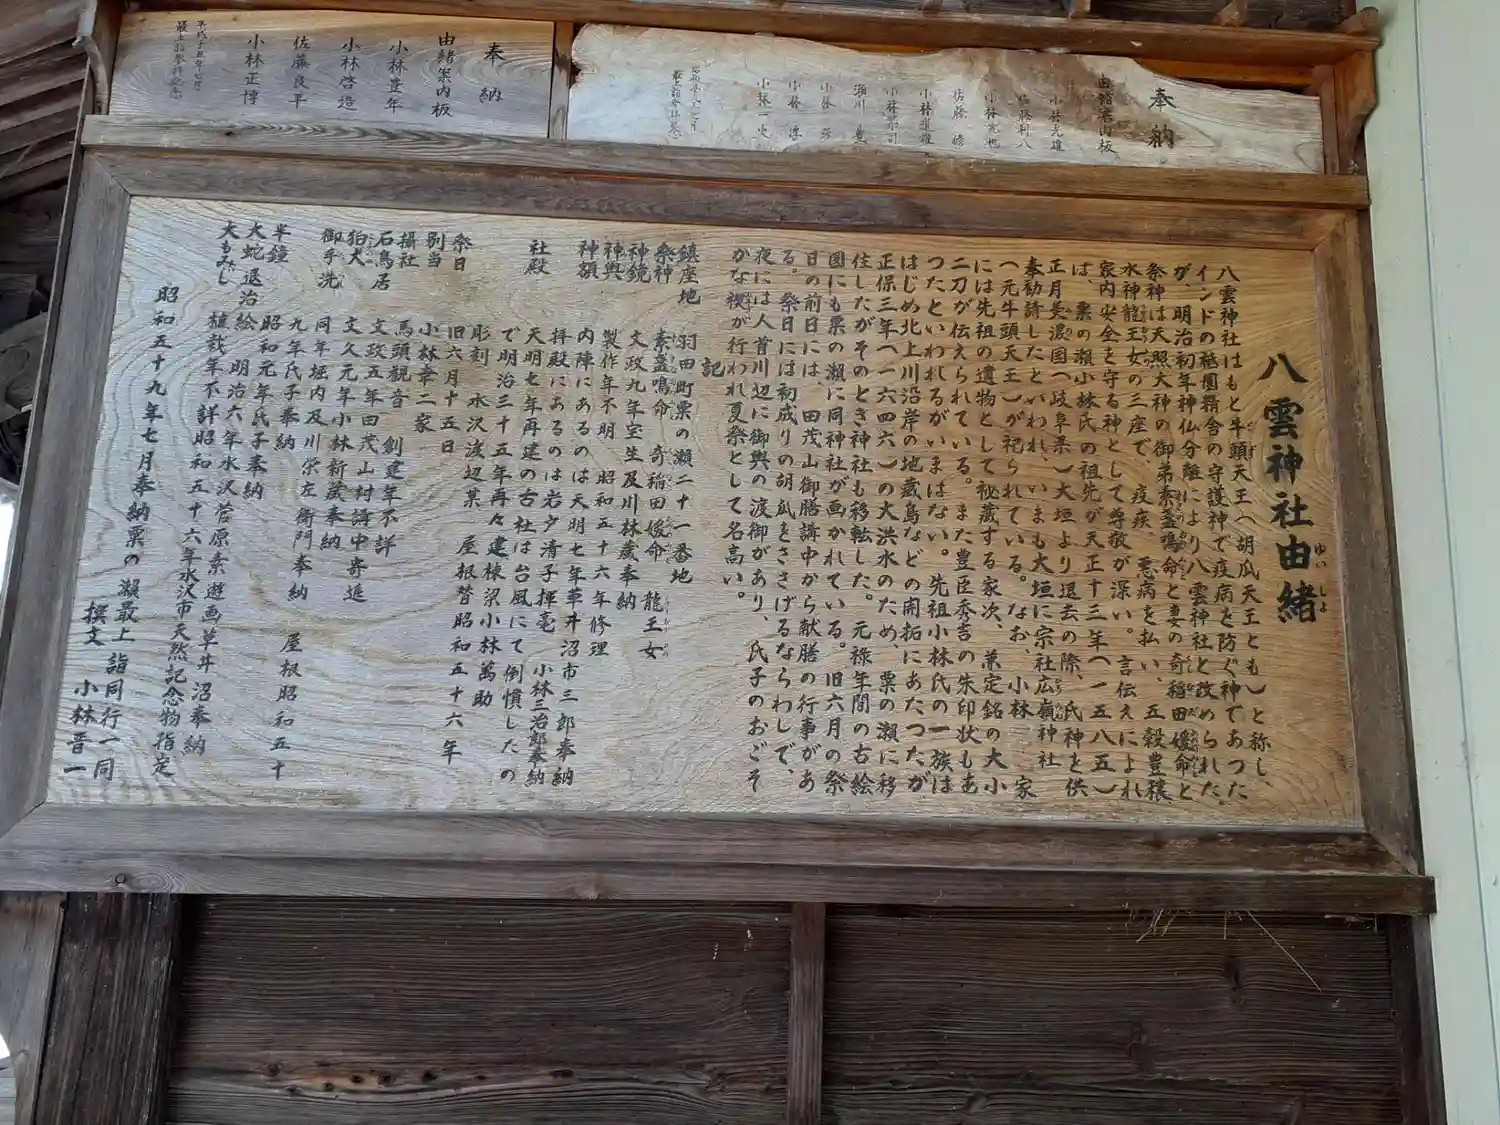 奉納
由緒案内板
小林豊年
小林啓造
佐藤良平
小林正博
奉納
由緒案内板
八雲神社由緒
ゆいしょ
八雲神社はもと牛頭天王(胡瓜天王とも)と称し、
インドの祗園精舎の守護神で疫病を防ぐ神であつた
が、明治初年神仏分離により八雲神社と改められた。
祭神は天照大神の御弟素盞鳴命と妻の奇稲田媛命と
水神龍王女の三座で、疫疾、悪病を払い、五穀豊穣
家内安全を守る神として尊敬が深い。言伝えによれ
ば、栗の瀬小林氏の祖先が天正十三年(一五八五)
正月美濃国(岐阜県)大垣より退去の際、氏神を供
奉勧請したといわれ、いまも大垣に宗社広嶺神社
(元牛頭天王)が祀られている。なお、小林一家
には先祖の遺物として秘蔵する家次、兼定銘の大小
二刀が伝えられている。また豊臣秀吉の朱印状もあ
つたといわれるがいまはない。先祖小林氏の一族は
はじめ北上川沿岸の地蔵島などの開拓にあたつたが
正保三年(一六四六)の大洪水のため、栗の瀬に移
住したがそのとき神社も移転した。元禄年間の古絵
図にも栗の瀬に同神社が画かれている。旧六月の祭
日の前日には、田茂山御膳講中から献膳の行事があ
る。祭日には初成りの胡瓜をささげるならわしで、
夜には人首川辺に御輿の渡御があり、氏子のおごそ
かな禊が行われ夏祭として名高い。
記
鎮座地 羽田町栗の瀬二十一番地
祭神 素盞鳴命 奇稲田媛命 龍王女
神鏡 文政九年室生及川林蔵奉納
神輿 製作年不明 昭和五十六年修理
神額 内陣にあるのは天明七年華井沼市三郎奉納
拝殿にあるのは岩戸清子揮毫 小林三治郎奉納
社殿 天明七年再建の古社は台風にて倒憤したの
で明治三十五年再々建棟梁小林萬助
彫刻 水沢渡辺某 屋根替昭和五十六年
祭日 旧六月十五日
別当 小林幸二家
摂社 馬頭観音 創建年不詳
石鳥居 文政五年田茂山村講中寄進
狛犬 文久元年小林新蔵奉納
御手洗 同年堀内及川栄左衛門奉納 屋根昭和五十
九年氏子奉納
半鐘 昭和元年氏子奉納
大蛇退治絵 明治六年水沢菅原素遊画草井沼奉納
大もみじ 植栽年不詳昭和五十六年水沢市天然記念物指定
昭和五十九年七月奉納栗の瀬最上詣同行一同
撰文 小林晋一